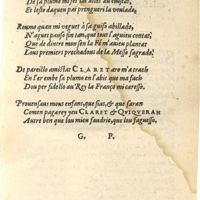 De sa plumo
Et lesse daquen pas prengueri la voulado,
Rusmo mi per quan mi veguet à sa guiso abillado,
N'agues pausso fin tan, que tout l'aguieu contat,
Que de diuers mon sen la Fé m'auien plantat
Lous premiers prechadous de la Messo sagrado.
De pareillo amistat CLARET aro m'a trach
En l'er embé sa plumo en l'abit que ma fach
Dou per sidello au Rey la França mi caresso.
Prouensaus mous enfans, que sias, & que saran
Comen pagarey yeu CLARET & QVIQVERAN
Autre ben que lou mieu saudrié, que lou faguesso.
G. P.